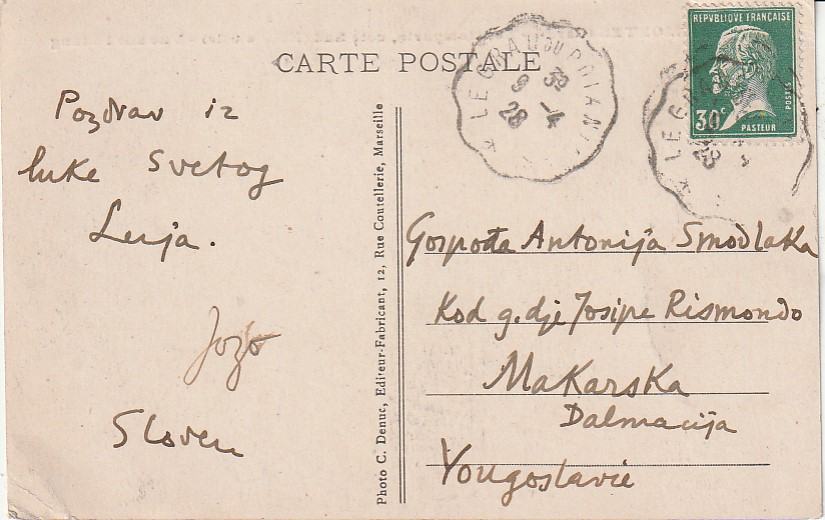 CARTE POSTALE
REPVBLIQVE FRANÇAISE
POSTES
30c
PASTEUR
LE GRAU DU
9 30
28 -4
LE GRAU
28
Pozdrav iz
luke Svetog
Luja.
Jozo
Sloven
Photo C. Denuc, Editeur-Fabricant, 12, Rue Coutellerie, Marseille
Gospođa Antonija Smodlaka
Kod g.dje Josipe Rismondo
Makarska
Dalmacija
Yougoslavie